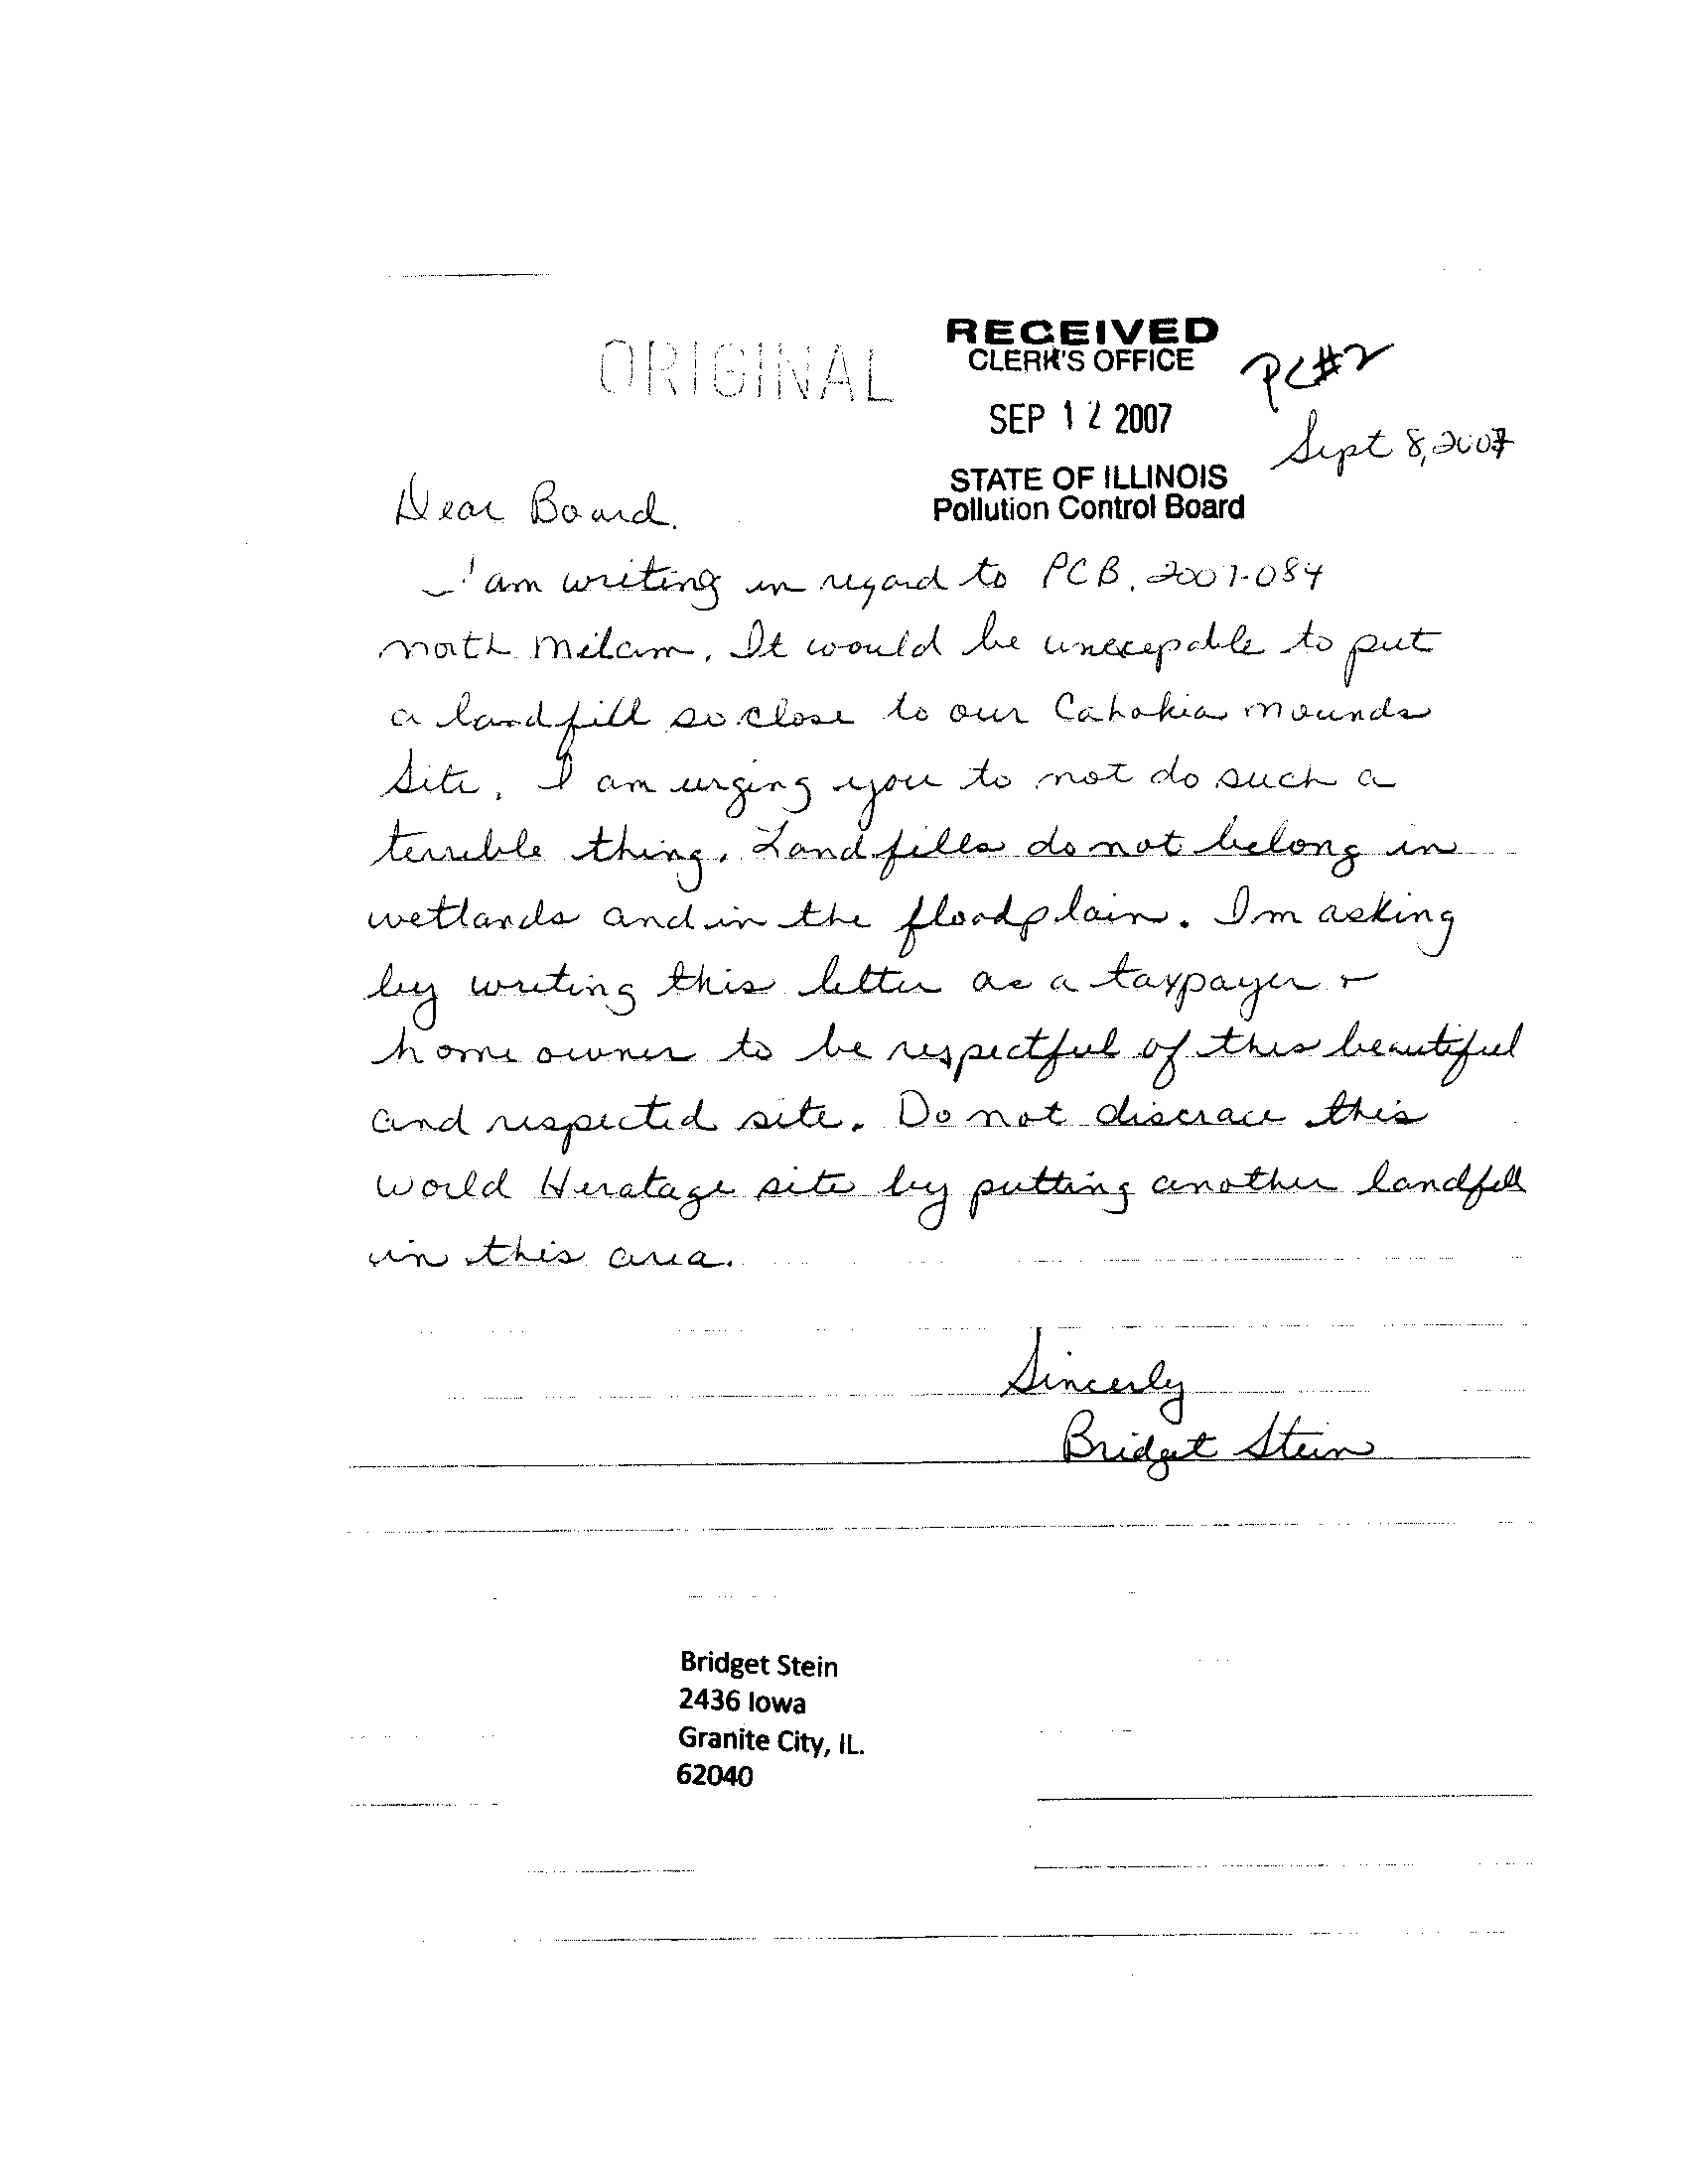 ORIGINAL
RECEIVED
CLERK'S OFFICE
PC#2
SEP 12 2007
Sept 8, 2007
STATE OF ILLINOIS
Pollution Control Board
Dear Board.
I am writing in regard to PCB. 2007-084
north milam. It would be unecepable to put
a landfill so close to our Cahokia mounds
Site. I am urging you to not do such a
terrible thing. Landfills do not belong in
wetlands and in the floodplain. Im asking
by writing this letter as a taxpayer +
home owner to be respectful of this beautiful
and respected site. Do not discrace this
world Heratage site by putting another landfill
in this area.
Sincerly
Bridget Stein
Bridget Stein
2436 Iowa
Granite City, IL.
62040